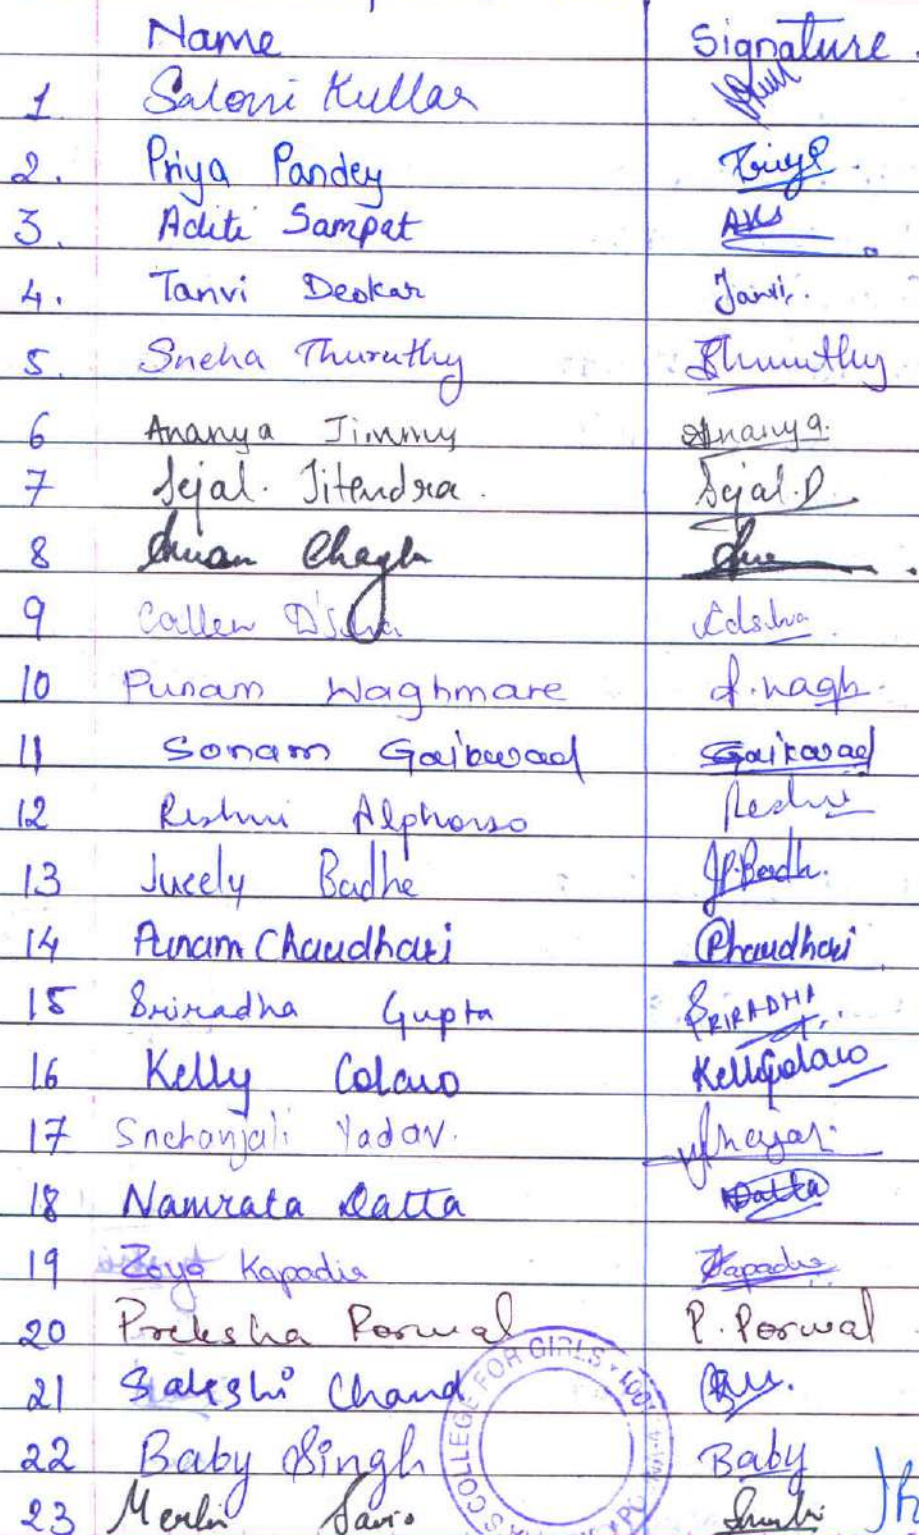 Name Signature
1 Saloni Kullar
2. Priya Pandey Priya
3. Aditi Sampat AKS
4. Tanvi Deokar Tanvi
5. Sneha Thuruthy Sthuruthy
6 Ananya Jimmy Ananya
7 Sejal. Jitendra. Sejal.D
8 Chagla
9 Callen D'Silva Cdsilva
10 Punam Waghmare P.Wagh.
11 Sonam Gaikwad Gaikwad
12 Reshmi Alphonso
13 Jueely Badhe JP.Badh.
14 Punam Chaudhari PChaudhari
15 Sriradha Gupta SRIRADHA
16 Kelly Colaco Kelly Colaco
17 Snehanjali Yadav.
18 Namrata Datta Datta
19 Zoya Kapadia Kapadia
20 Preksha Porwal P. Porwal
21 Sakshi Chand
22 Baby Singh Baby
23 Merlin Savio
COLLEGE FOR GIRLS